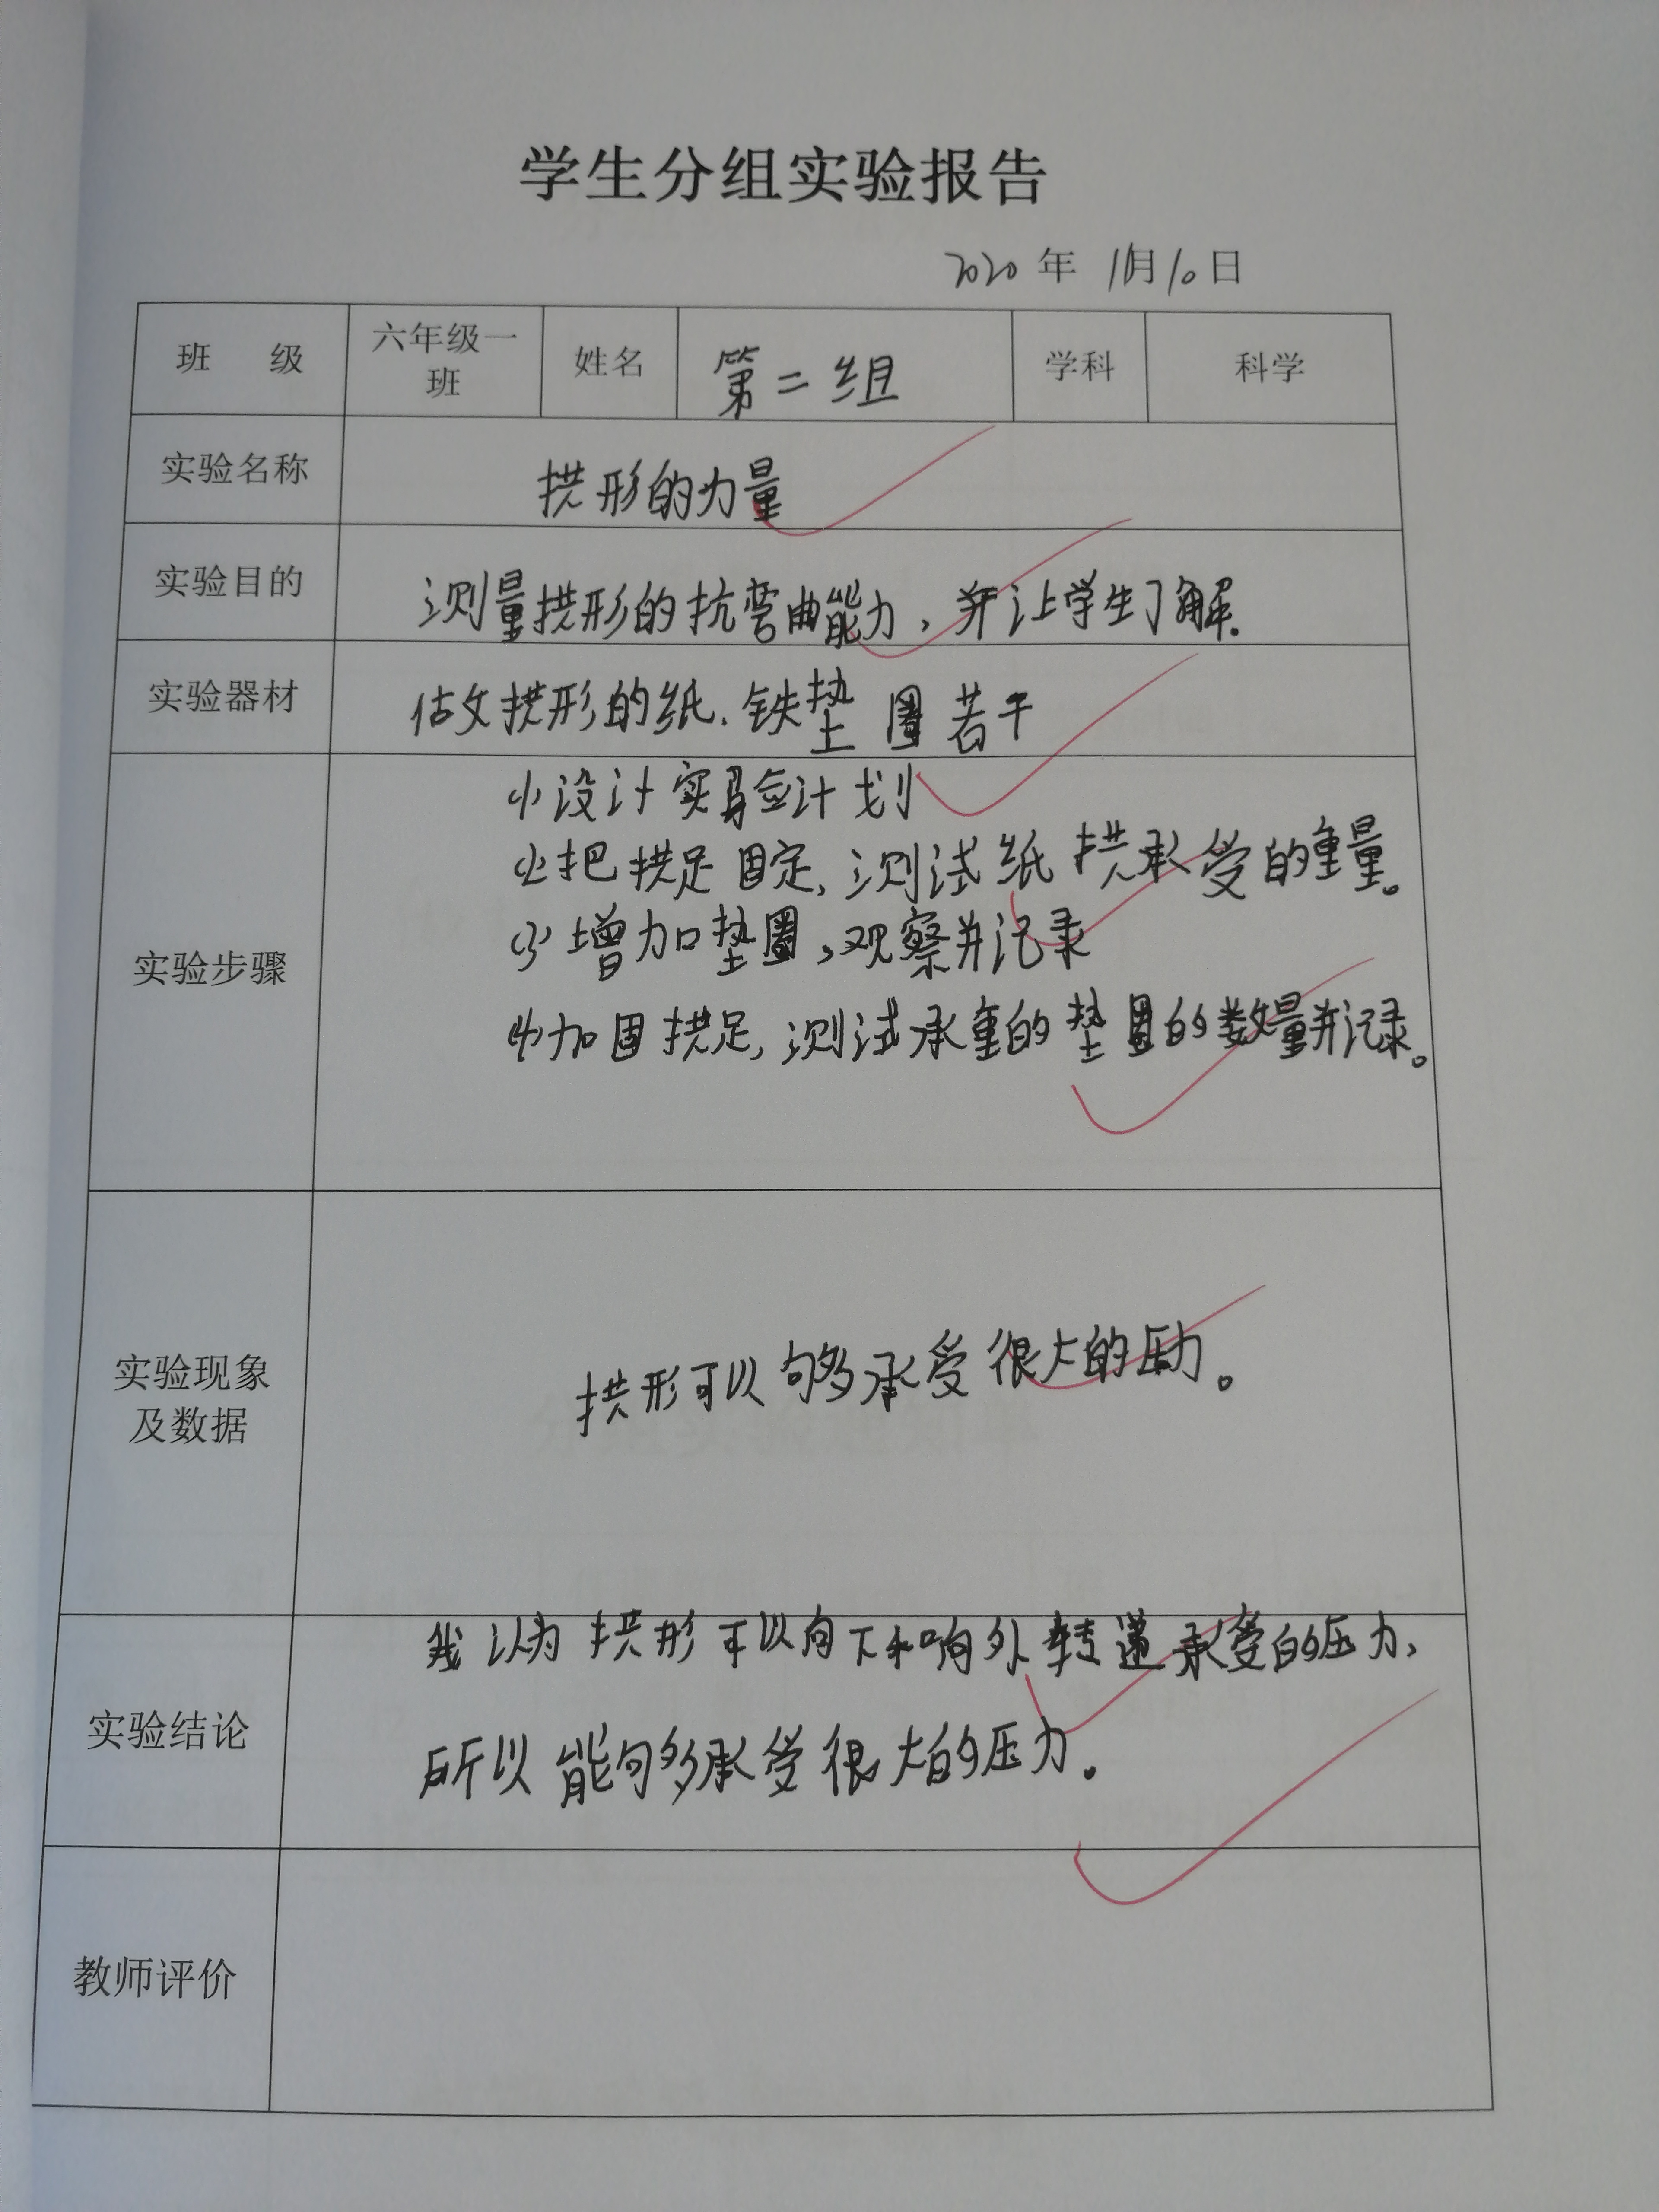 学生分组实验报告
2020年 11月10日
班 级 六年级一班 姓名 第二组 学科 科学
实验名称 拱形的力量
实验目的 测量拱形的抗弯曲能力,并让学生了解.
实验器材 做拱形的纸.铁垫圈若干
实验步骤
(1)设计实验计划
(2)把拱足固定,测试纸拱承受的重量。
(3)增加垫圈,观察并记录
(4)加固拱足,测试承重的垫圈的数量并记录。
实验现象及数据 拱形可以够承受很大的压力。
实验结论
我认为拱形可以向下和响外转递承受的压力,
所以能够承受很大的压力。
教师评价